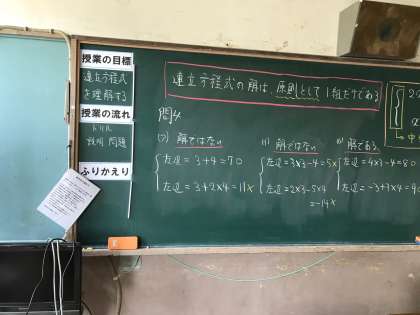 授業の目標
連立方程式
を理解する
授業の流れ
ドリル
説明 問題
ふりかえり
連立方程式の解は、原則として1組だけである
問4
(ア) 解ではない
左辺 = 3+4=7○
左辺 = 3+2×4=11×
(イ) 解ではない
左辺=3×3-4=5×
左辺=2×3-5×4
=-14×
(ウ) 解である
左辺=4×3-4=8○
左辺=-3+3×4=9